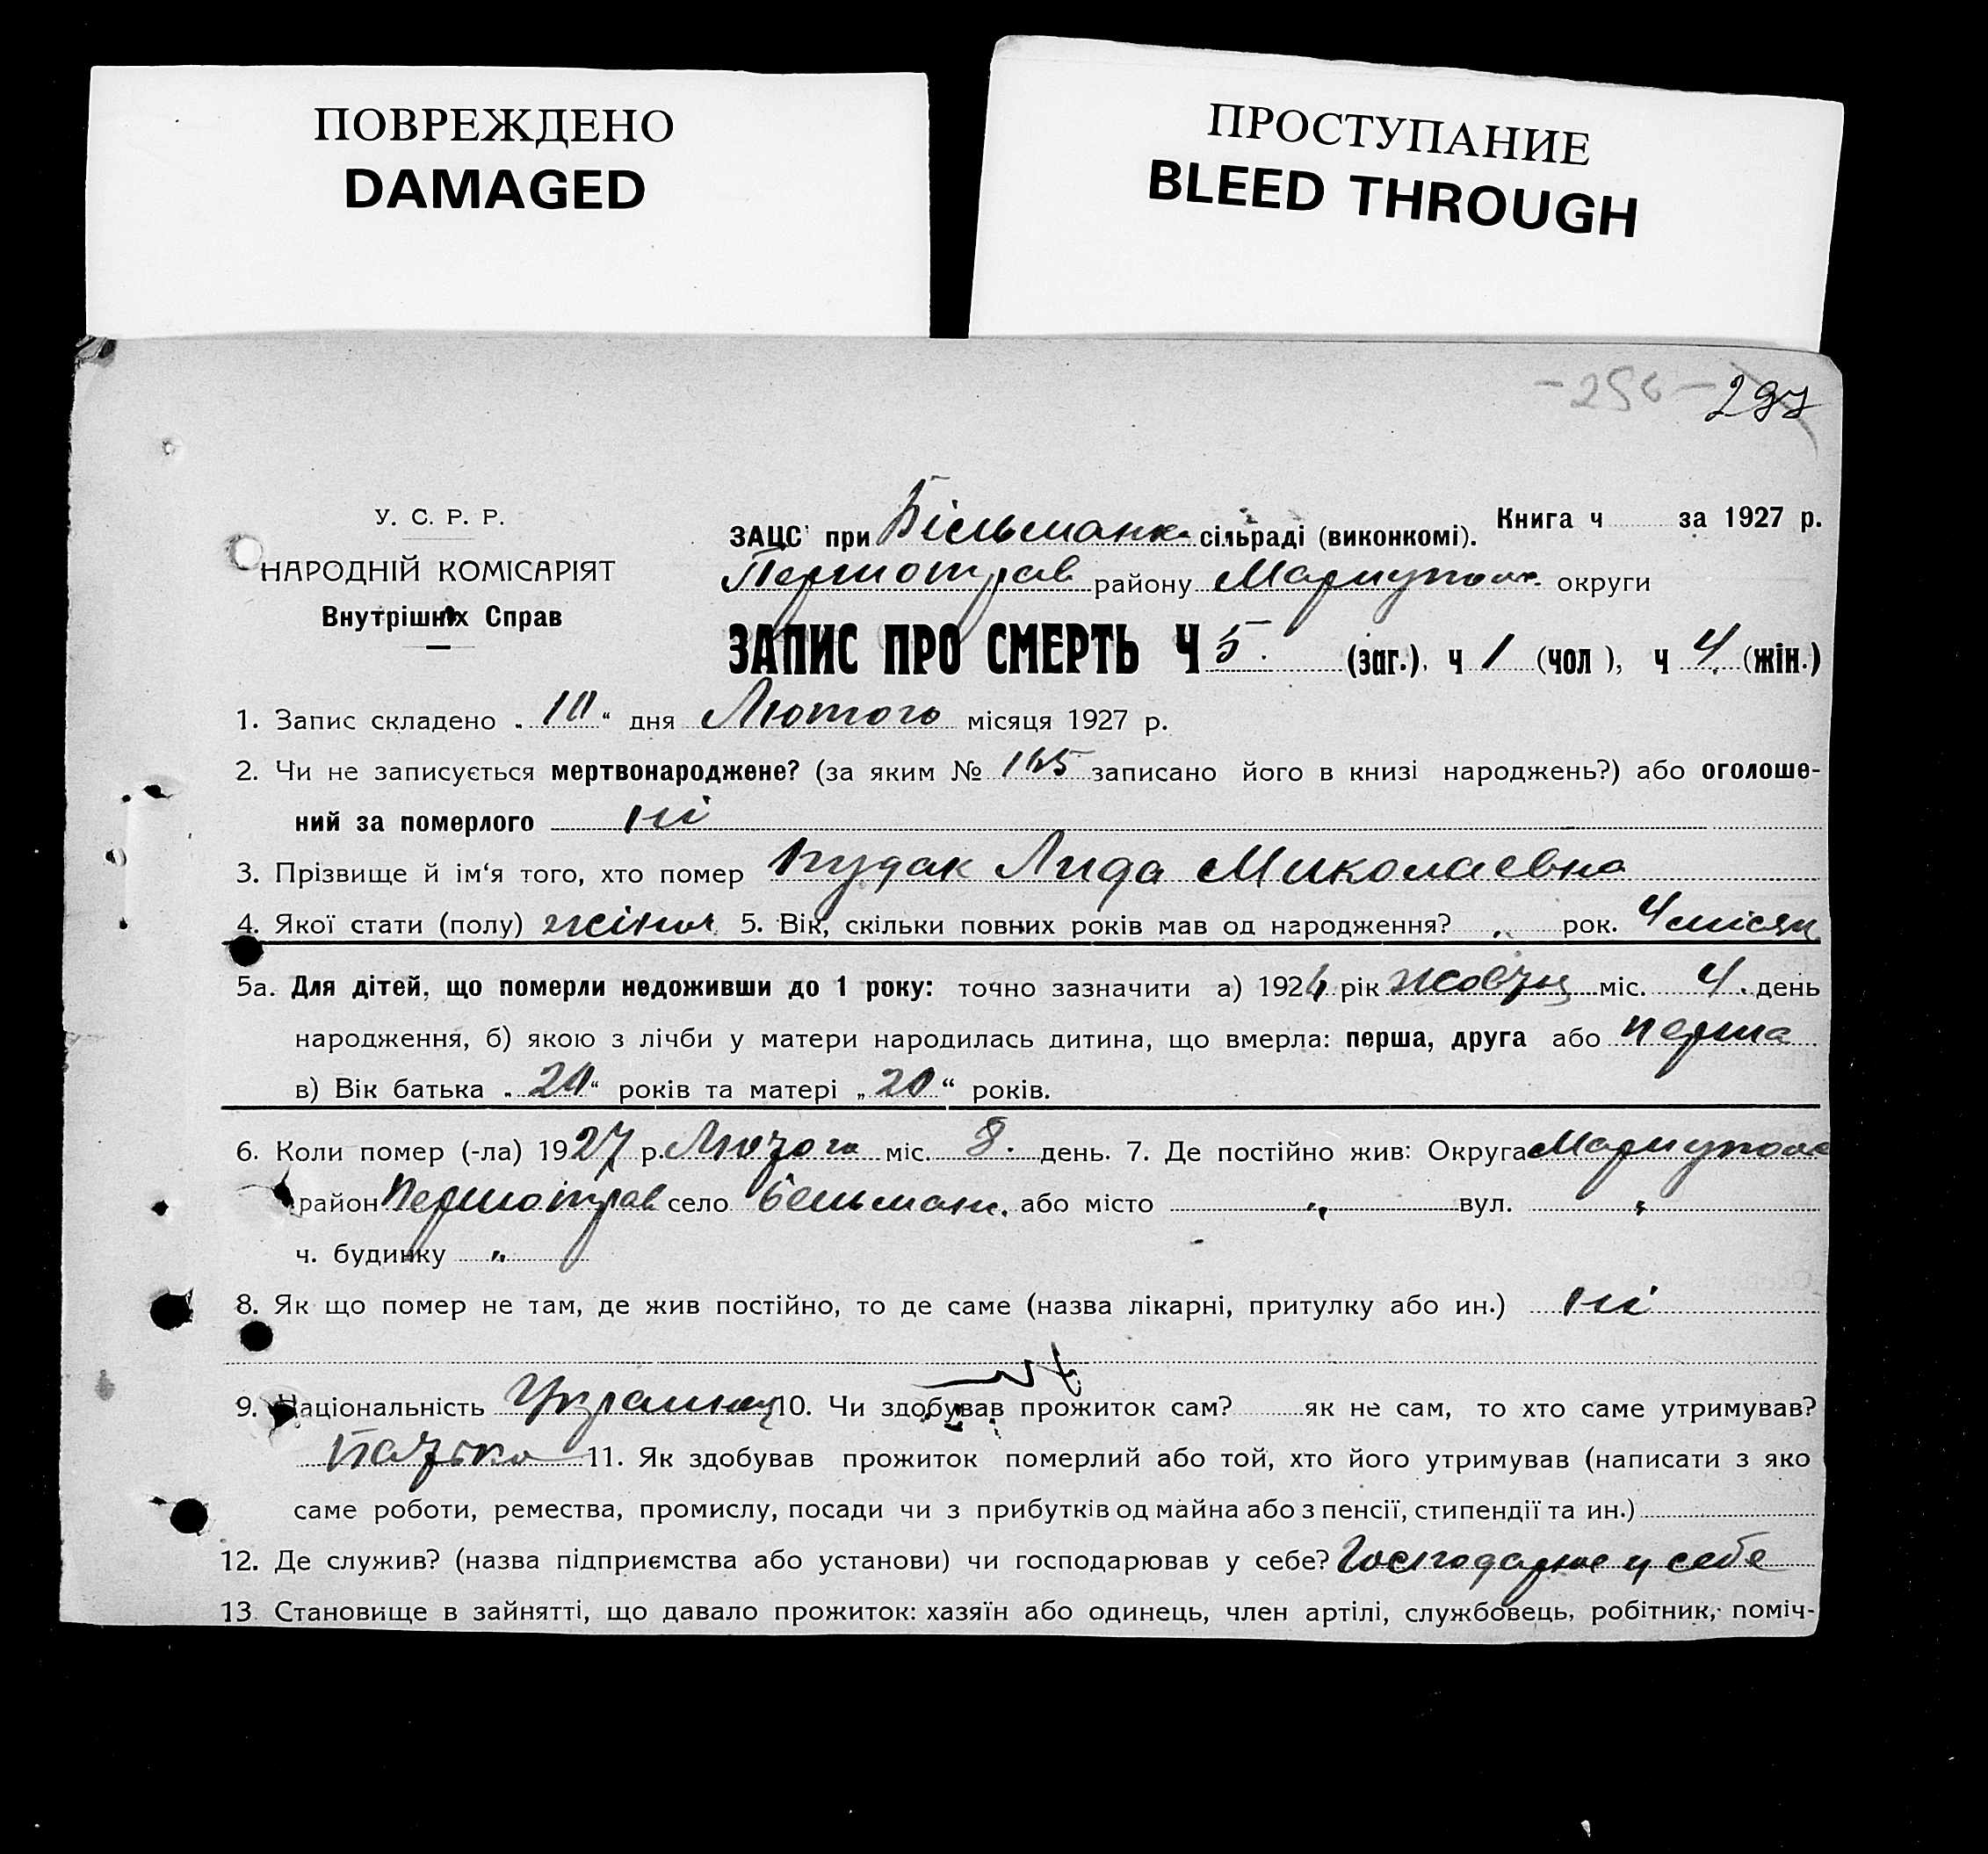 ПОВРЕЖДЕНО
DAMAGED
ПРОСТУПАНИЕ
BLEED THROUGH
- 256 - 297
У. С. Р. Р.
НАРОДНІЙ КОМІСАРІЯТ
Внутрішніх Справ
Книга ч за 1927 р.
ЗАЦС при Більманк. сільраді (виконкомі).
Першотрав району Мариупол. округи
ЗАПИС ПРО СМЕРТЬ Ч 5. (заг.), ч 1 (чол), ч 4. (жін.)
1. Запис складено „10“ дня Лютого місяця 1927 р.
2. Чи не записується мертвонароджене? (за яким № 165 записано його в книзі народжень?) або оголоше-
ний за померлого ні
3. Прізвище й ім‘я того, хто помер Лида Миколаевна
4. Якої стати (полу) жіноч. 5. Вік, скільки повних років мав од народження? „ рок. 4 місяц
5а. Для дітей, що померли недоживши до 1 року: точно зазначити а) 1926 рік жовтц міс. 4. день
народження, б) якою з лічби у матери народилась дитина, що вмерла: перша, друга або перша
в) Вік батька „20“ років та матері „20“ років.
6. Коли помер (-ла) 1927 р. Лютого міс. 8. день. 7. Де постійно жив: Округа Мариупол
район Першотрав село Більманк. або місто „ вул. „
ч. будинку „
8. Як що помер не там, де жив постійно, то де саме (назва лікарні, притулку або ин.) ні
9. Національність 10. Чи здобував прожиток сам? ні як не сам, то хто саме утримував?
Батько 11. Як здобував прожиток померлий або той, хто його утримував (написати з яко
саме роботи, ремества, промислу, посади чи з прибутків од майна або з пенсії, стипендії та ин.)
12. Де служив? (назва підприємства або установи) чи господарював у себе? Господарює у себе
13. Становище в зайнятті, що давало прожиток: хазяїн або одинець, член артілі, службовець, робітник, поміч-